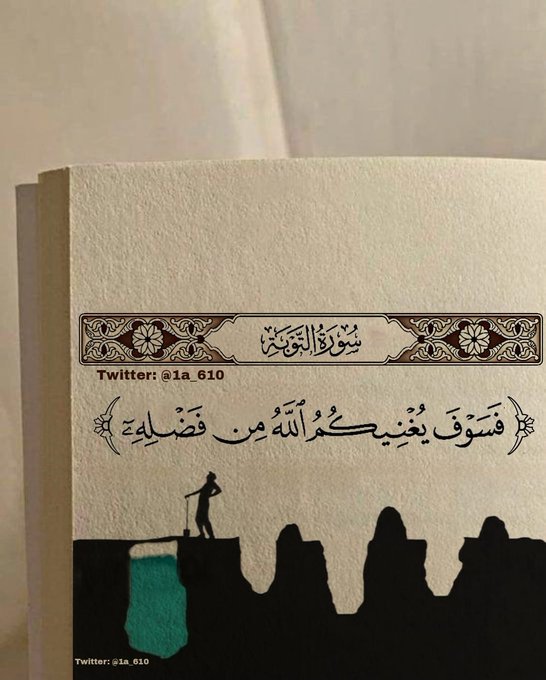 سُورَةُ التَّوْبَةِ
Twitter: @1a_610
﴿فَسَوْفَ يُغْنِيكُمُ ٱللَّهُ مِن فَضْلِهِۦٓ﴾
Twitter: @1a_610